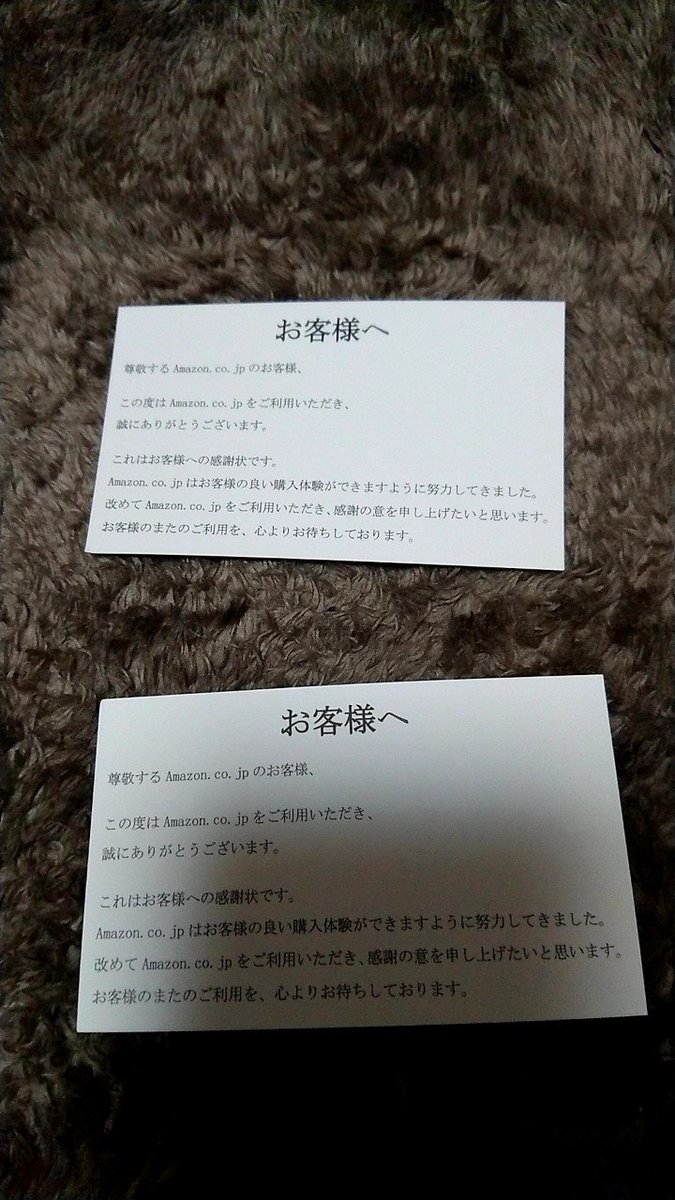 お客様へ
尊敬するAmazon.co.jpのお客様、
この度はAmazon.co.jpをご利用いただき、
誠にありがとうございます。
これはお客様への感謝状です。
Amazon.co.jpはお客様の良い購入体験ができますように努力してきました。
改めてAmazon.co.jpをご利用いただき、感謝の意を申し上げたいと思います。
お客様のまたのご利用を、心よりお待ちしております。
お客様へ
尊敬するAmazon.co.jpのお客様、
この度はAmazon.co.jpをご利用いただき、
誠にありがとうございます。
これはお客様への感謝状です。
Amazon.co.jpはお客様の良い購入体験ができますように努力してきました。
改めてAmazon.co.jpをご利用いただき、感謝の意を申し上げたいと思います。
お客様のまたのご利用を、心よりお待ちしております。